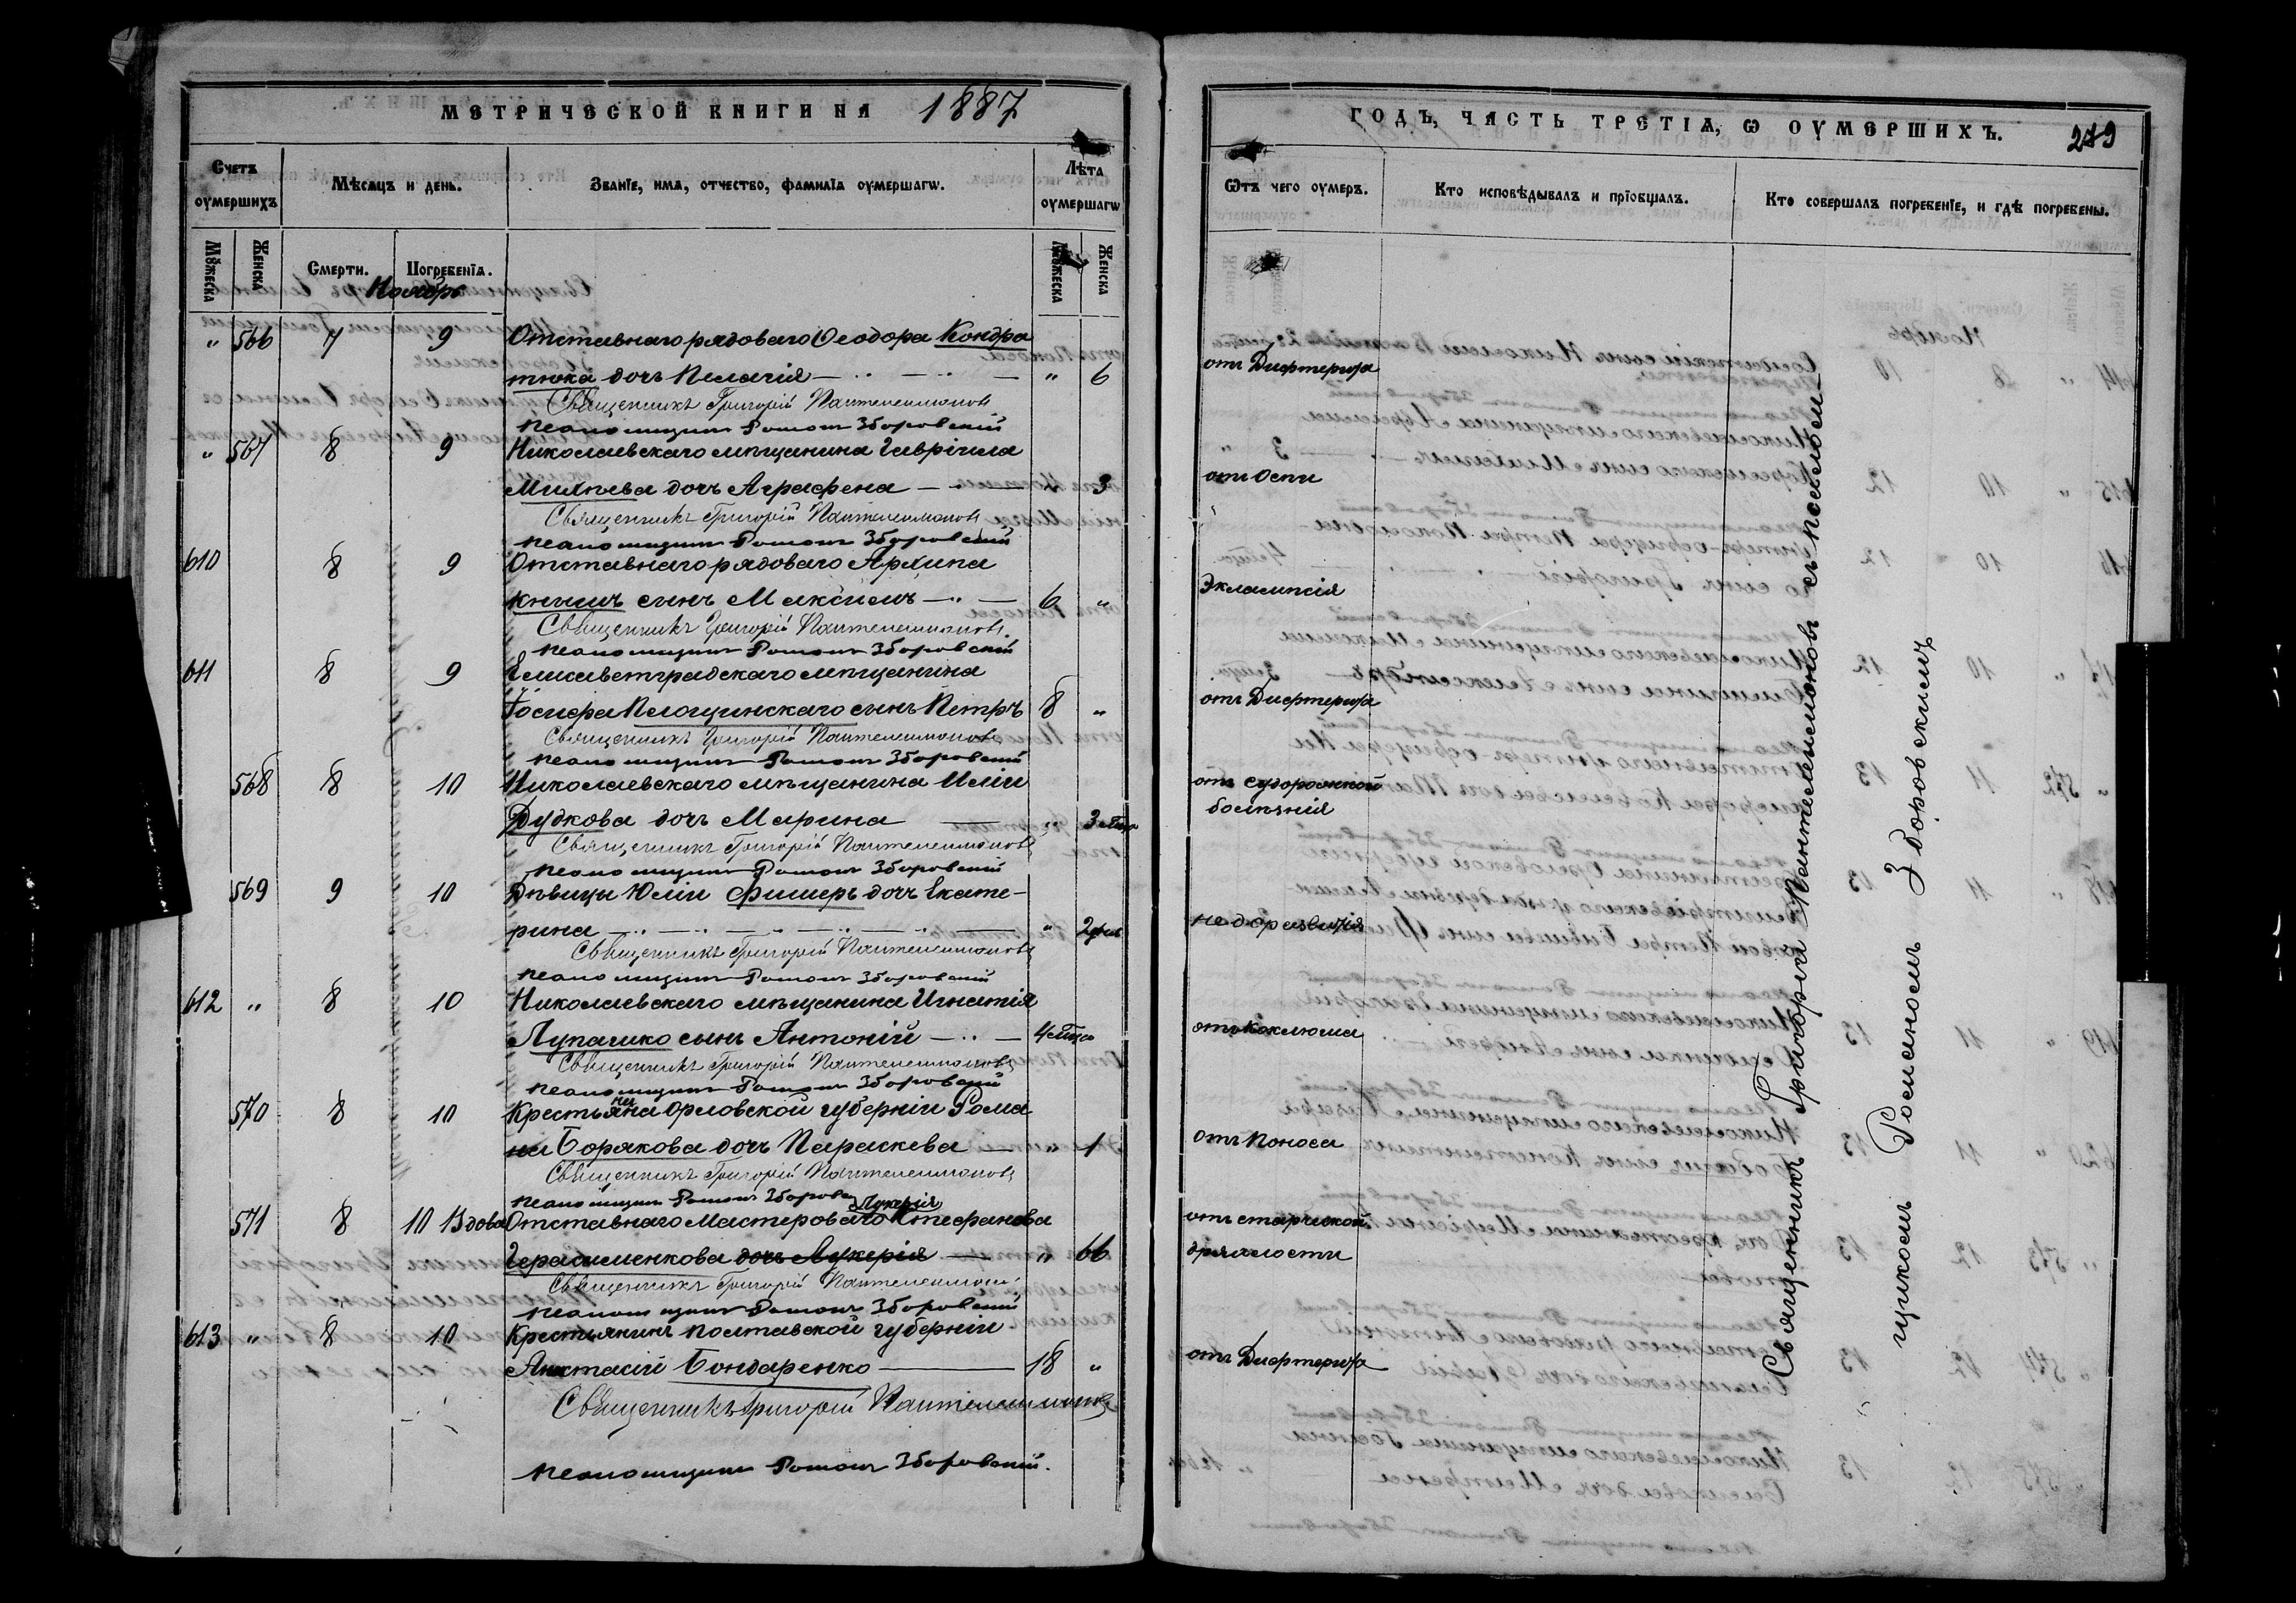 МЕТРИЧЕСКОЙ КНИГИ НА 1887
Счетъ умершихъ
Мѣсяцъ и день.
Званіе, имя, отчество, фамилія умершагѡ.
Лѣта умершагѡ
Мужеска
Женска
Смерти.
Погребенія.
Мужеска
Женска
Ноябрь
" 566 7 9 Отставнаго рядоваго Ѳеодора Кондра
тюка дочь Пелагія " 6
Священникъ Григорій Пантелеимоновъ
Псаломщикъ Романъ Зборовскій
" 567 8 9 Николаевскаго мѣщанина Гавріила
Михѣева дочь Аграфена " 3
Священникъ Григорій Пантелеимоновъ
Псаломщикъ Романъ Зборовскій
610 8 9 Отставнаго рядоваго Архипа
Книшъ сынъ Максимъ 6 "
Священникъ Григорій Пантелеимоновъ.
Псаломщикъ Романъ Зборовскій
611 8 9 Елисаветградскаго мѣщанина
Іосифа сынъ Петръ 8 "
Священникъ Григорій Пантелеимоновъ
Псаломщикъ Романъ Зборовскій
568 8 10 Николаевскаго мѣщанина Иліи
Дудкова дочь Марина " 3 мѣсяца
Священникъ Григорій Пантелеимоновъ
Псаломщикъ Романъ Зборовскій
569 9 10 Дѣвицы Юліи Фишеръ дочь Екате-
рина " 2 дня
Священникъ Григорій Пантелеимоновъ
Псаломщикъ Романъ Зборовскій
612 " 8 10 Николаевскаго мѣщанина Игнатія
Лупашко сынъ Антоній 4 мѣсяца
Священникъ Григорій Пантелеимоновъ
Псаломщикъ Романъ Зборовскій
570 8 10 Крестьянина Орловской губерніи Рома
на Борякова дочь Параскева " 1
Священникъ Григорій Пантелеимоновъ
Псаломщикъ Романъ Зборовскій
571 8 10 Вдова Отставнаго Мастероваго Лукерія Стефанова
Герасименкова дочь Лукерія " 66
Священникъ Григорій Пантелеимоновъ
Псаломщикъ Романъ Зборовскій
613 " 8 10 Крестьянинъ Полтавской губерніи
Анастасій Бондаренко 18 "
Священникъ Григорій Пантелеимоновъ
Псаломщикъ Романъ Зборовскій.
ГОДЪ, ЧАСТЬ ТРЕТІЯ, Ѡ УМЕРШИХЪ. 289
Ѿтъ чего умеръ.
Кто исповѣдывалъ и пріобщалъ.
Кто совершалъ погребеніе, и гдѣ погребены.
отъ Дифтерита
отъ Оспи
Эклампсія
отъ Дифтерита
отъ судорожной
болѣзнія
недоразвитія
отъ коклюша
отъ Поноса
отъ старческой
дряхлости
отъ Дифтерита
Священникъ Григорій Пантелеимоновъ съ псалом-
щикомъ Романомъ Зборовскимъ